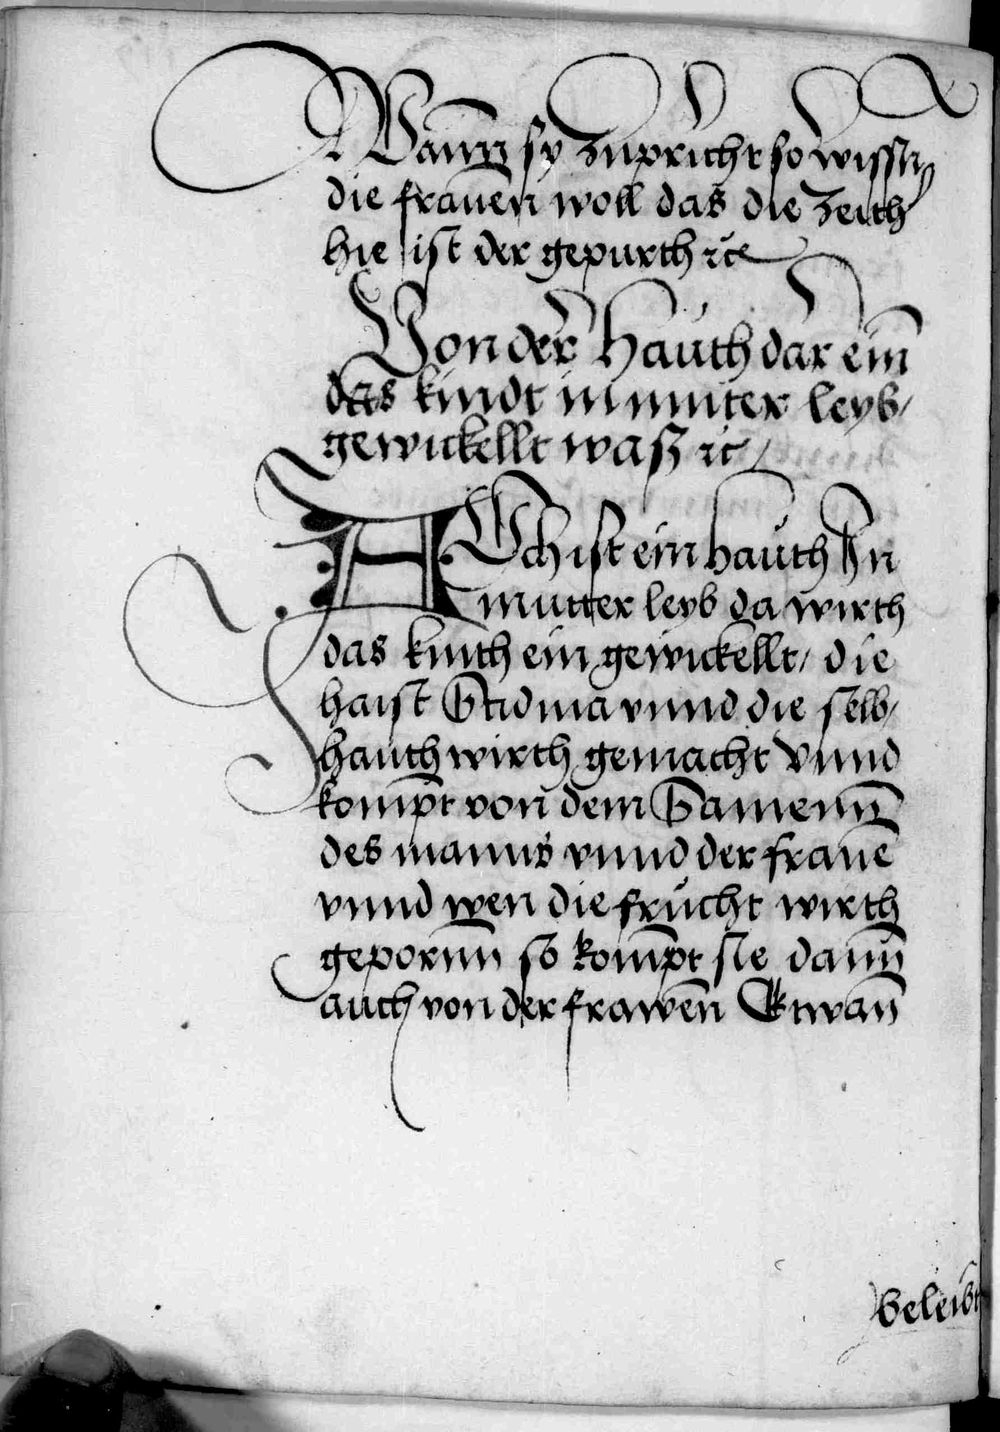 Wann sy zupricht so wissen
die frauen woll das die zeith
hie ist der gepurth ⁊c̃
Von der Hauth dar ein
das kindt in muter leyb/
gewickellt waß ⁊c̃/
AVch ist ein hauth In
mutter leyb da wirth
das kinth ein gewickellt/ die
haist vnnd die selb/
hauth wirth gemacht Vnnd
kompt von dem Samenn
des manns vnnd der frauē
vnnd wen die frucht wirth
gepornn so kompt sie dann
auch von der frawen Etwan
beleibt